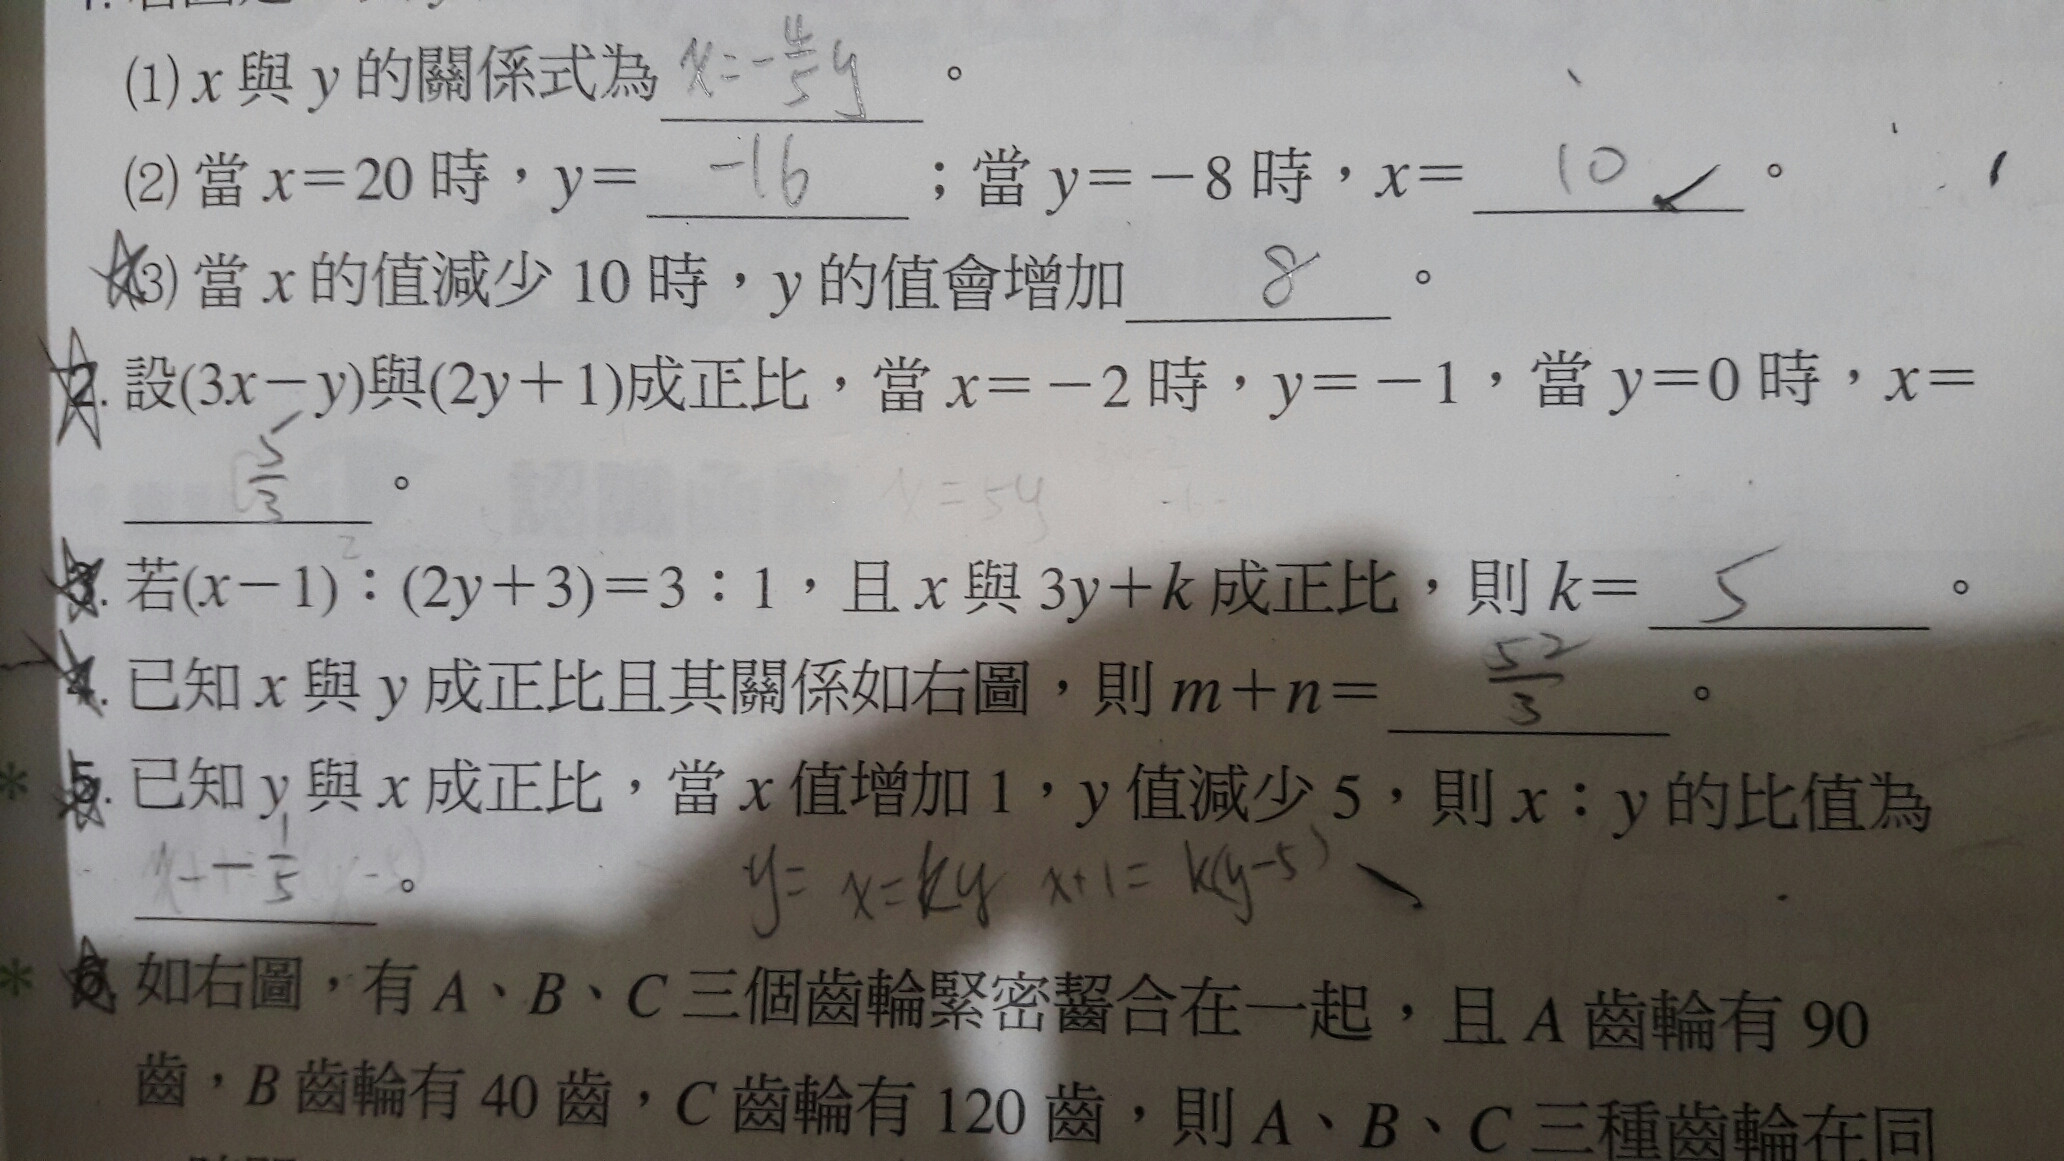 (1) x 與 y 的關係式為 x=-4/5y 。
(2) 當 x=20 時，y= -16 ；當 y=-8 時，x= 10 。
(3) 當 x 的值減少 10 時，y 的值會增加 8 。
2. 設(3x-y)與(2y+1)成正比，當 x=-2 時，y=-1，當 y=0 時，x=
5/3 。
x=5y
3. 若(x-1)：(2y+3)=3：1，且 x 與 3y+k 成正比，則 k= 5 。
4. 已知 x 與 y 成正比且其關係如右圖，則 m+n= 52/3 。
5. 已知 y 與 x 成正比，當 x 值增加 1，y 值減少 5，則 x：y 的比值為
-1/5 。
y= x=ky x+1=k(y-5)
6. 如右圖，有 A、B、C 三個齒輪緊密齧合在一起，且 A 齒輪有 90
齒，B 齒輪有 40 齒，C 齒輪有 120 齒，則 A、B、C 三種齒輪在同